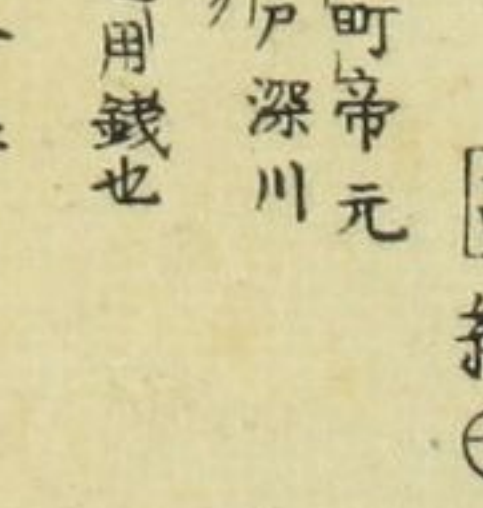 町帝元
戸深川
用銭也